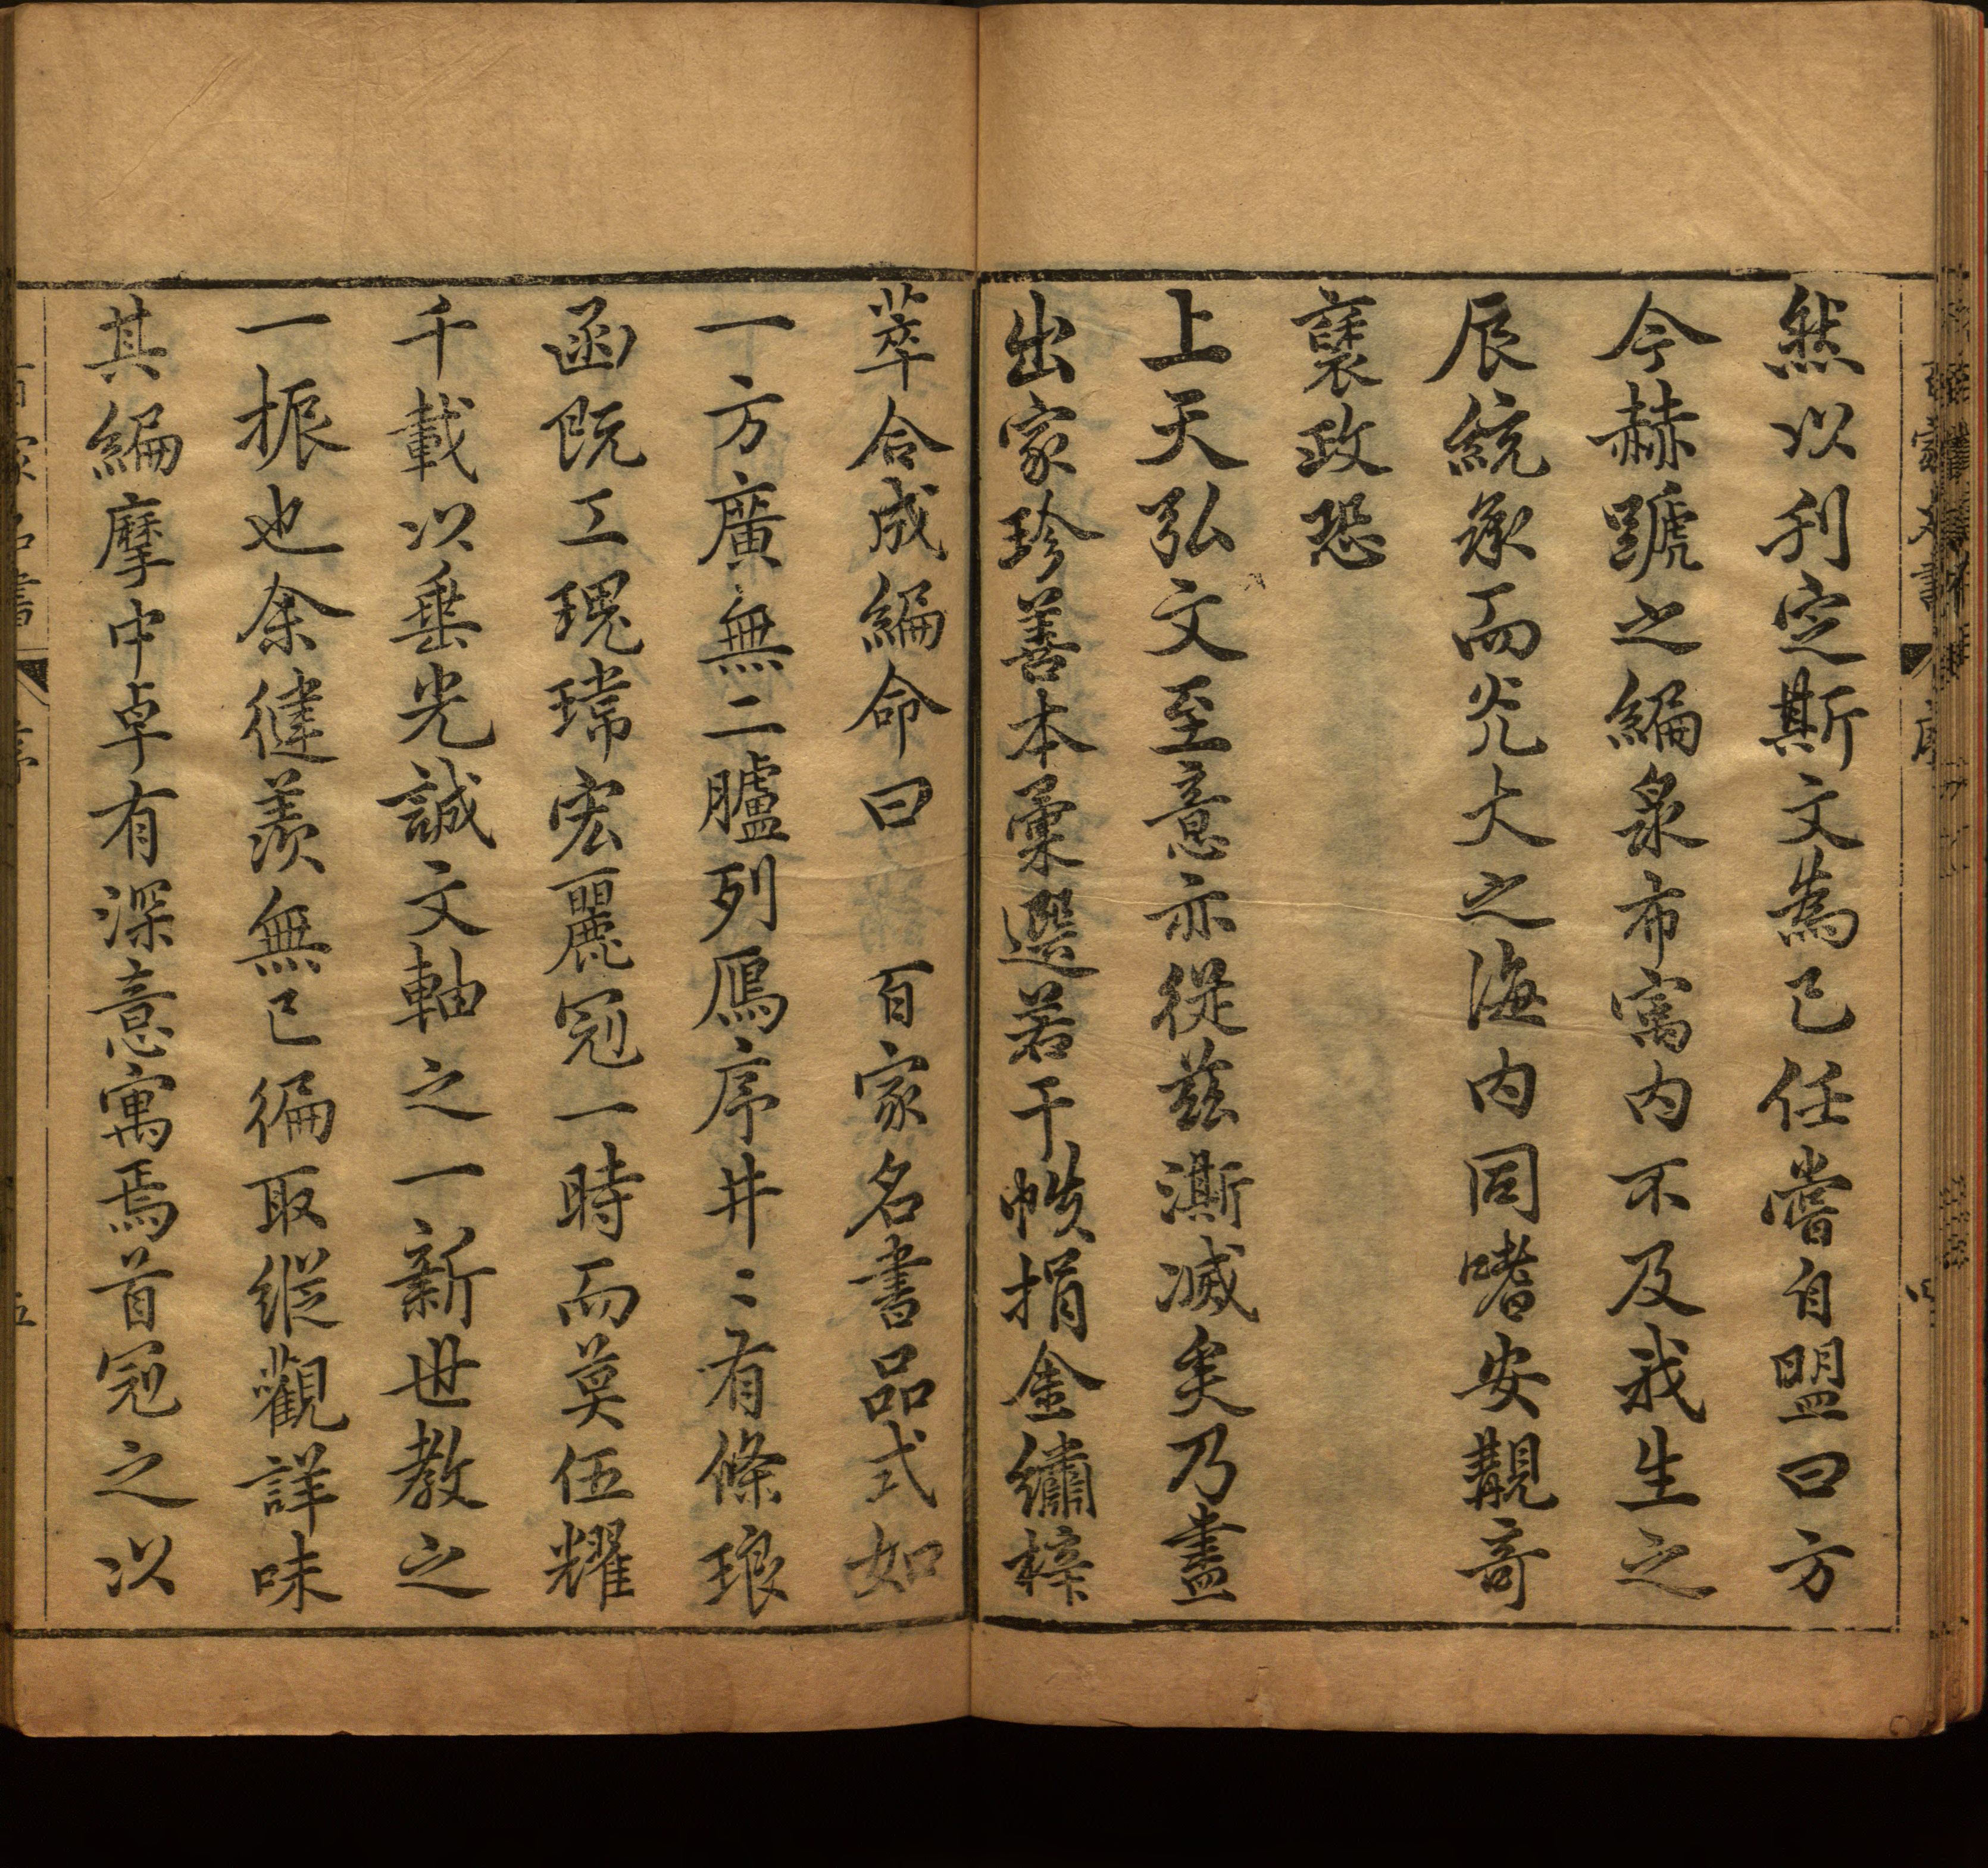 然以刋定斯文為己任嘗自盟曰方
今赫蹏之編泉布寓内不及我生之
辰統承而光大之海内同嗜安覯竒
襃政恐
上天弘文至意亦從兹澌滅矣乃盡
出家珍善本彙選若干帙捐金繡梓
萃合成編命曰 百家名書品式如
一方廣無二臚列鴈序井〻有條琅
函既工瑰瑋宏麗冠一時而莫伍耀
千載以垂光誠文軸之一新世教之
一振也余健羨無已徧取縱觀詳味
其編摩中卓有深意寓焉首冠之以